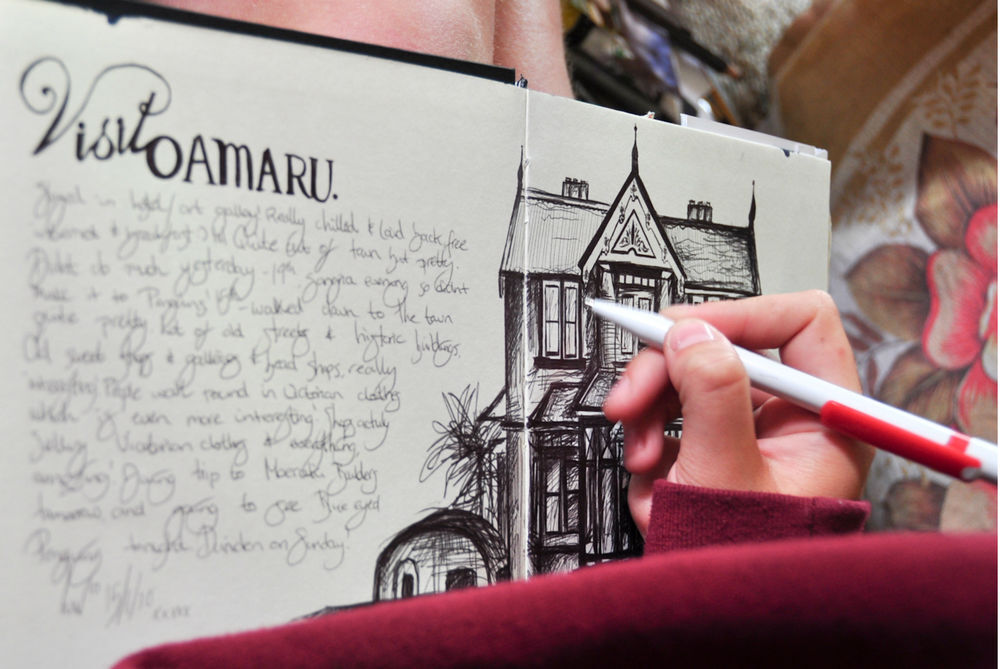 Visit OAMARU.
in art gallery! Really chilled & laid back, free
internet & breakfast :) Quite out of town but pretty.
Didn't do much yesterday - evening so didn't
make it to Penguins! - walked down to the town
quite pretty, lot of old streets & historic buildings.
Old sweet shops & galleries & head shops, really
interesting! People walk round in Victorian clothing
which is even more interesting! Shops actually
Selling Victorian clothing & everything,
amazing! trip to Moeraki Boulders
tomorrow and going to see Blue eyed
Penguins tonight. Dunedin on Sunday!